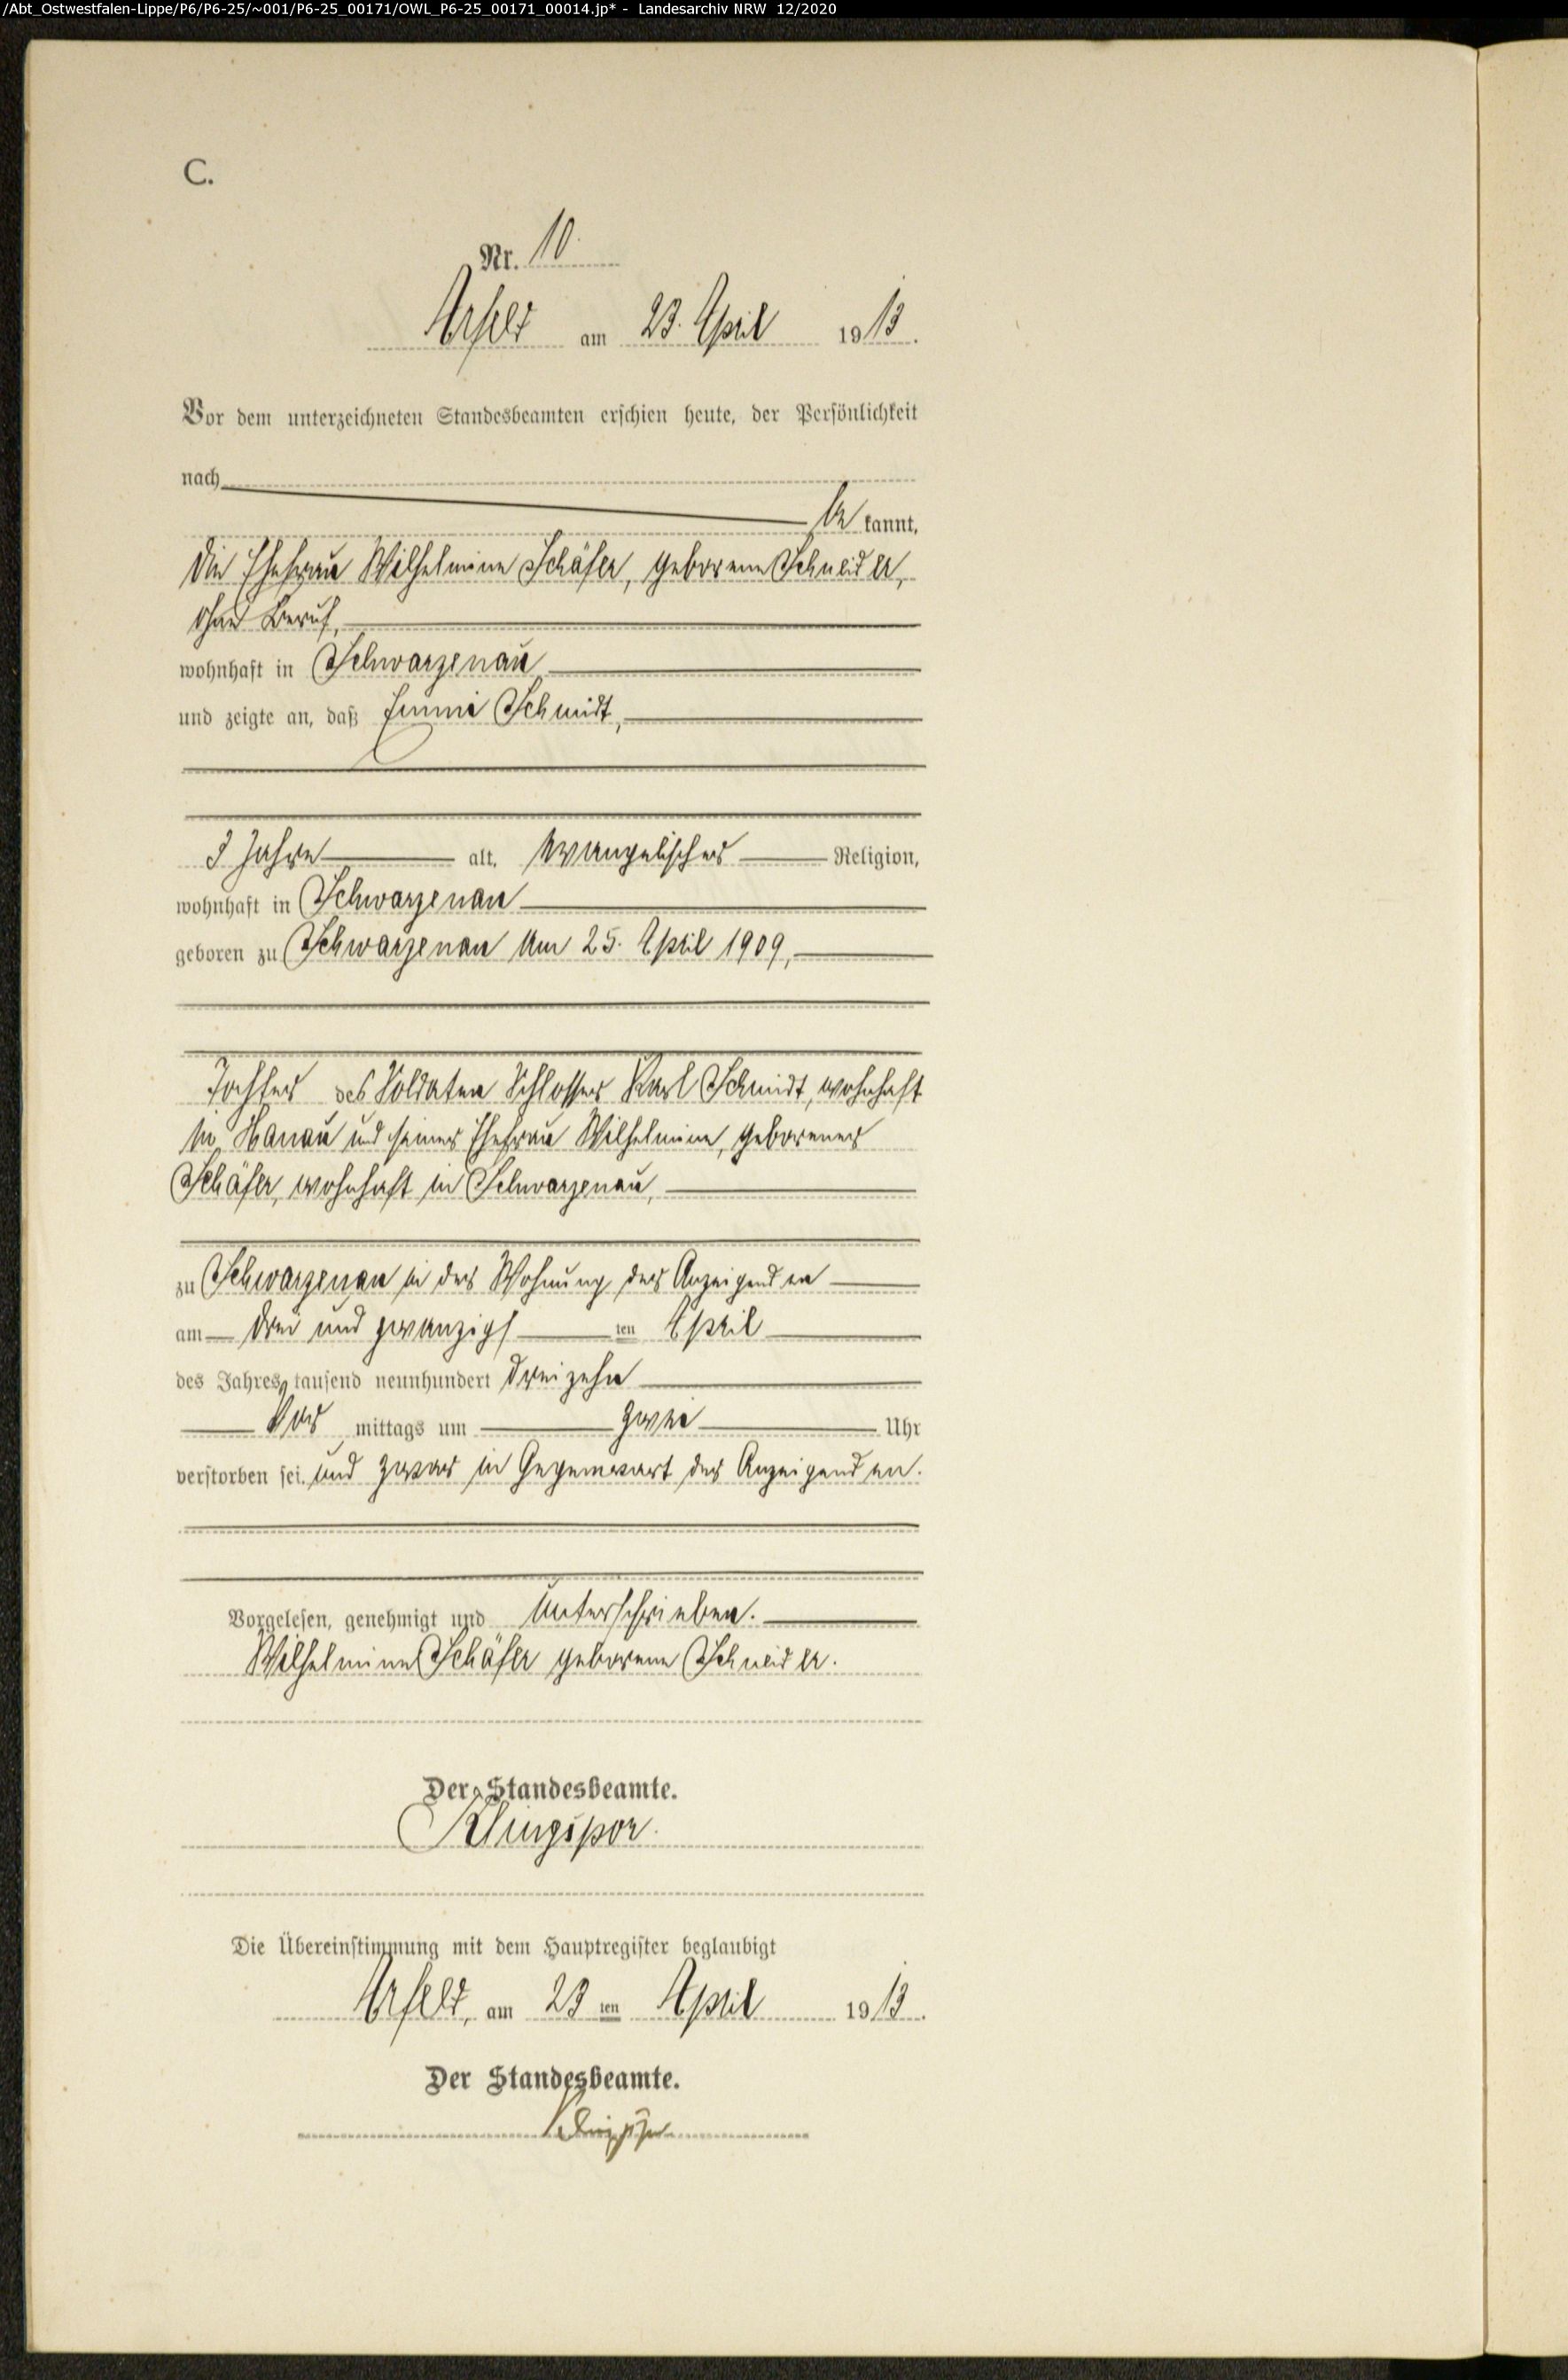 /Abt_Ostwestfalen-Lippe/P6/P6-25/~001/P6-25_00171/OWL_P6-25_00171_00014.jp* - Landesarchiv NRW 12/2020
C.
Nr. 10
Arfeld am 23. April 1913.
Vor dem unterzeichneten Standesbeamten erschien heute, der Persönlichkeit
nach
be kannt,
die Ehefrau Wilhelmine Schäfer, geborene Schneider,
ohne Beruf,
wohnhaft in Schwarzenau
und zeigte an, daß Emmi Schmidt,
3 Jahre alt, evangelischer Religion,
wohnhaft in Schwarzenau
geboren zu Schwarzenau am 25. April 1909,
Tochter des Soldaten Schlosser Karl Schmidt, wohnhaft
in Hanau und seiner Ehefrau Wilhelmine, geborener
Schäfer, wohnhaft in Schwarzenau,
zu Schwarzenau in der Wohnung der Anzeigenden
am drei und zwanzigs ten April
des Jahres tausend neunhundert dreizehn
Vor mittags um zwei Uhr
verstorben sei und zwar in Gegenwart der Anzeigenden.
Vorgelesen, genehmigt und unterschrieben.
Wilhelmine Schäfer geborene Schneider.
Der Standesbeamte.
Klingspor.
Die Übereinstimmung mit dem Hauptregister beglaubigt
Arfeld, am 23 ten April 1913.
Der Standesbeamte.
Klingspor